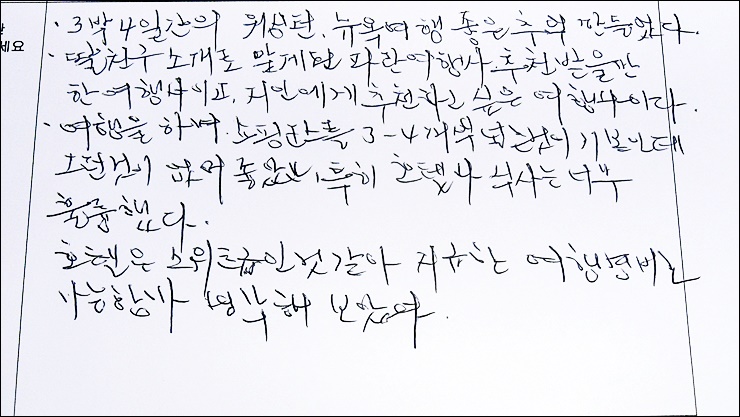 · 3박4일간의 워싱턴, 뉴욕여행 좋은 추억 만들었다.
세요
· 딸친구 소개로 알게된 파란여행사 추천받을만
한 여행사이고, 지인에게 추천하고 싶은 여행사이다.
· 여행을 하며 쇼핑만도 3-4개씩 기본인데
그런것이 없어 좋았고, 특히 호텔과 식사는 너무
훌륭했다.
호텔은 스위트급인것 같아 지급한 여행경비로
가능할까 생각해 보았다.